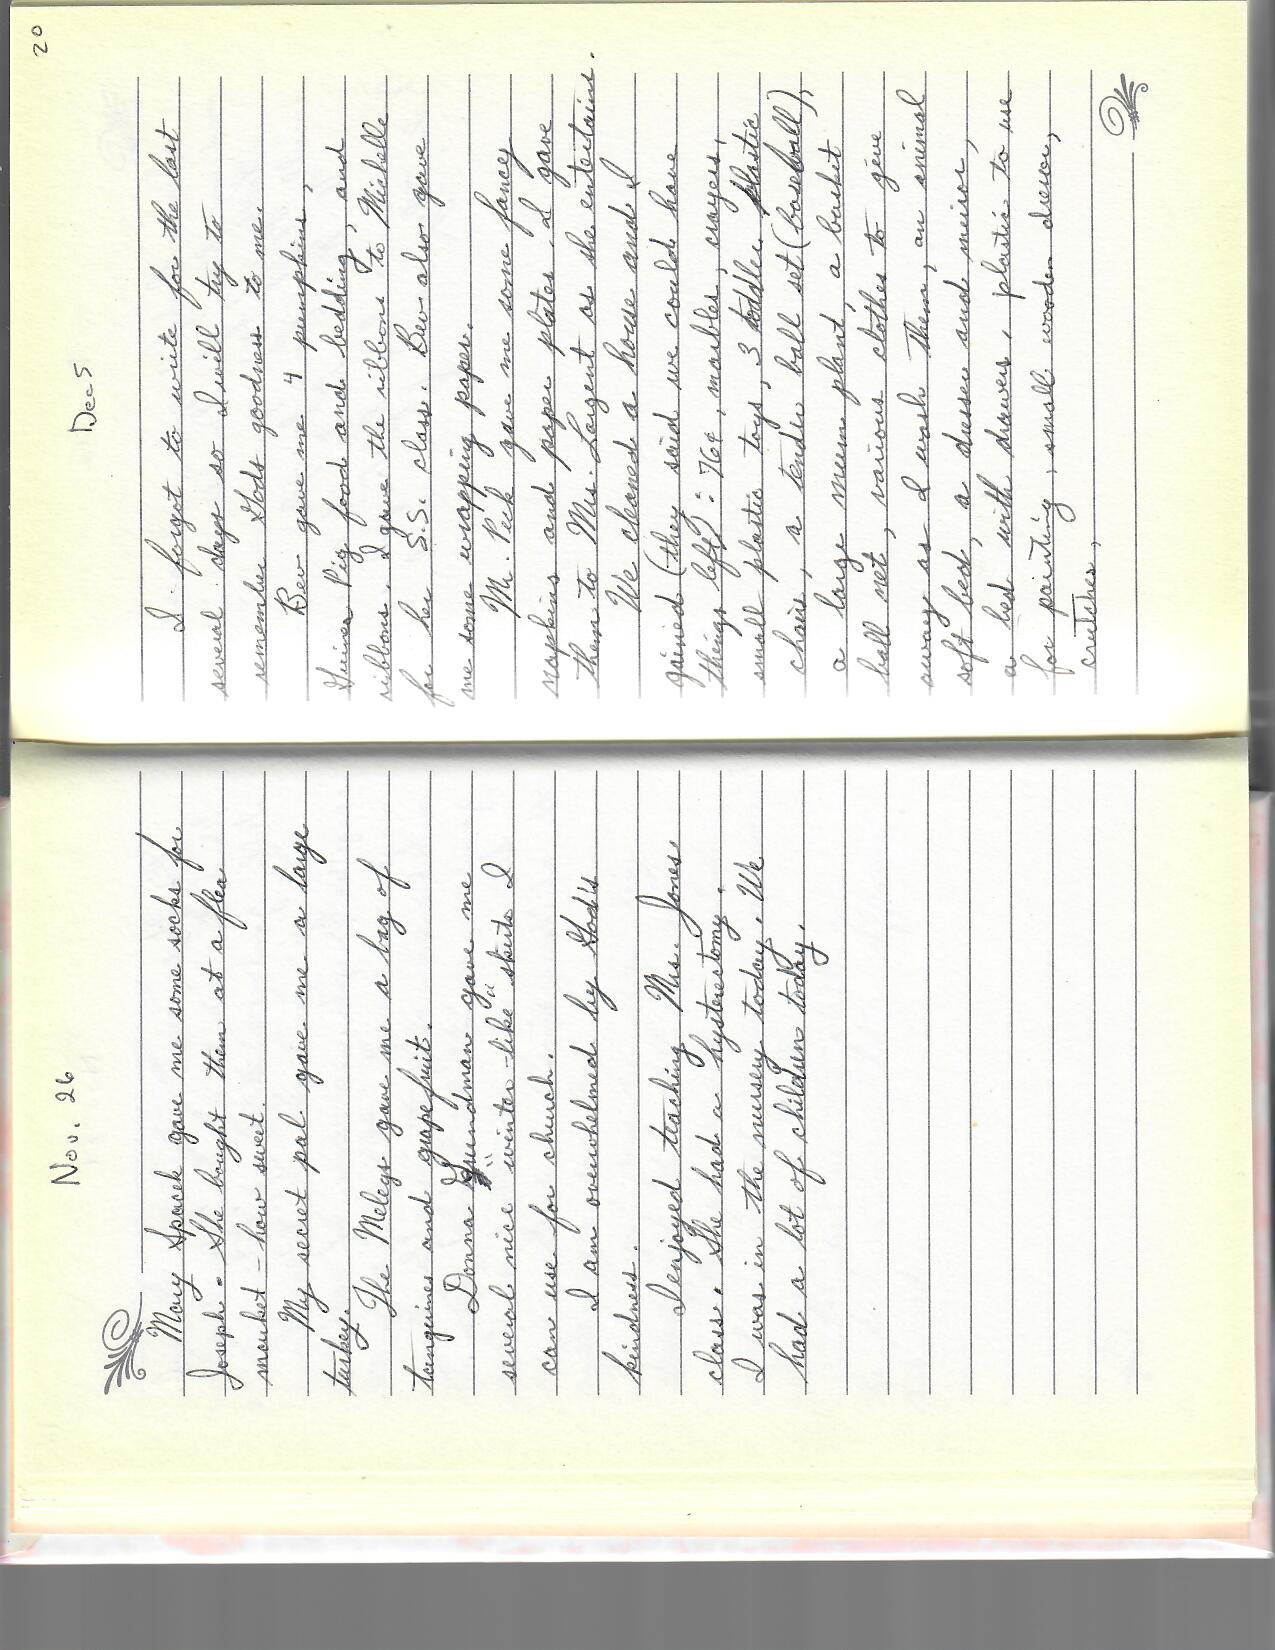 Nov. 26
Mary Spacek gave me some socks for
Joseph. She bought them at a flea
market - how sweet.
My secret pal gave me a large
turkey.
The Melegs gave me a bag of
tangerines and grapefruit.
Donna Grundman gave me
several nice "winter-like" skirts I
can use for church.
I am overwhelmed by God's
kindness.
I enjoyed teaching Mrs. Jones
class. She had a hysterectomy.
I was in the nursery today. We
had a lot of children today.
20
Dec 5
I forgot to write for the last
several days so I will try to
remember Gods goodness to me.
Bev gave me 4 pumpkins,
Guinea Pig food and bedding, and
ribbons. I gave the ribbons to Michelle
for her S.S. class. Bev also gave
me some wrapping paper.
Mr. Peck gave me some fancy
napkins and paper plates. I gave
them to Mrs. Largent as she entertains.
We cleaned a house and I
gained (they said we could have
things left): 76¢, marbles, crayons,
small plastic toys, 3 toddler plastic
chairs, a tender ball set (baseball),
a large mum plant, a basket
ball net, various clothes to give
away as I wash them, an animal
soft bed, a dresser and mirror,
a bed with drawers, plastic to use
for painting, small wooden dresser,
crutches,